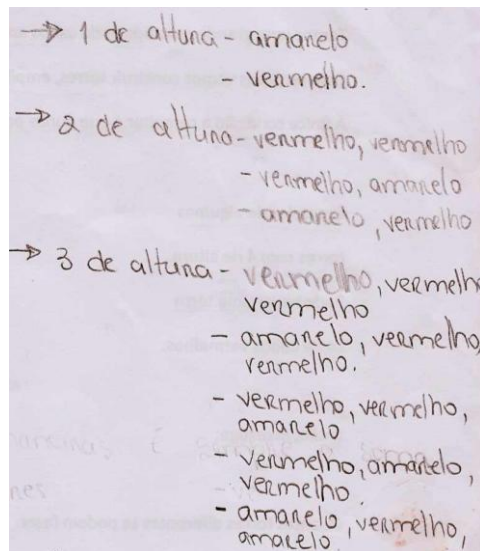 → 1 de altura - amarelo
- vermelho.
→ 2 de altura - vermelho, vermelho
- vermelho, amarelo
- amarelo, vermelho
→ 3 de altura - vermelho, vermelho
vermelho
- amarelo, vermelho,
vermelho.
- vermelho, vermelho,
amarelo
- vermelho, amarelo,
vermelho
- amarelo, vermelho,
amarelo.